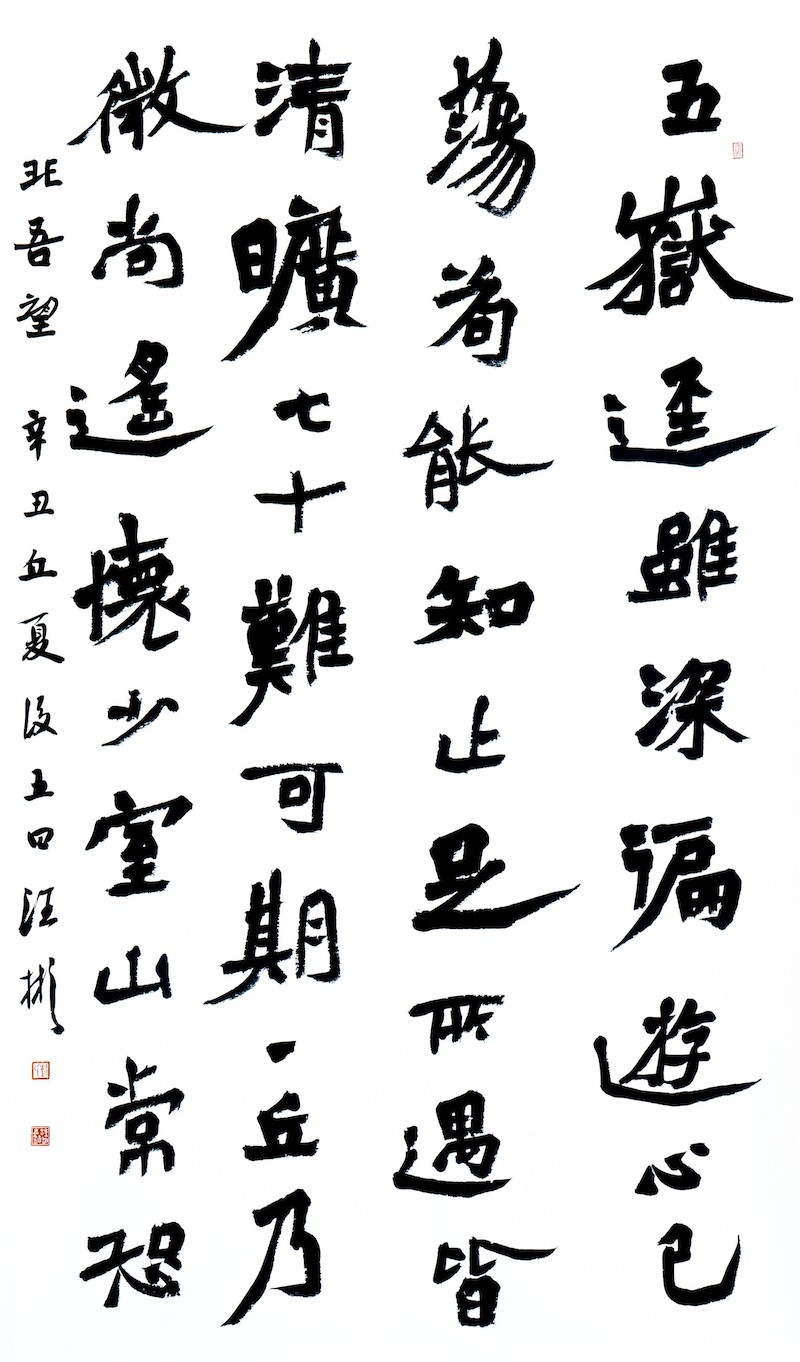 五嶽逕雖深遍遊心已
蕩苟能知止足所遇皆
清曠七十難可期一丘乃
微尚遙懷少室山常恐
非吾望 辛丑立夏後五日汪彬